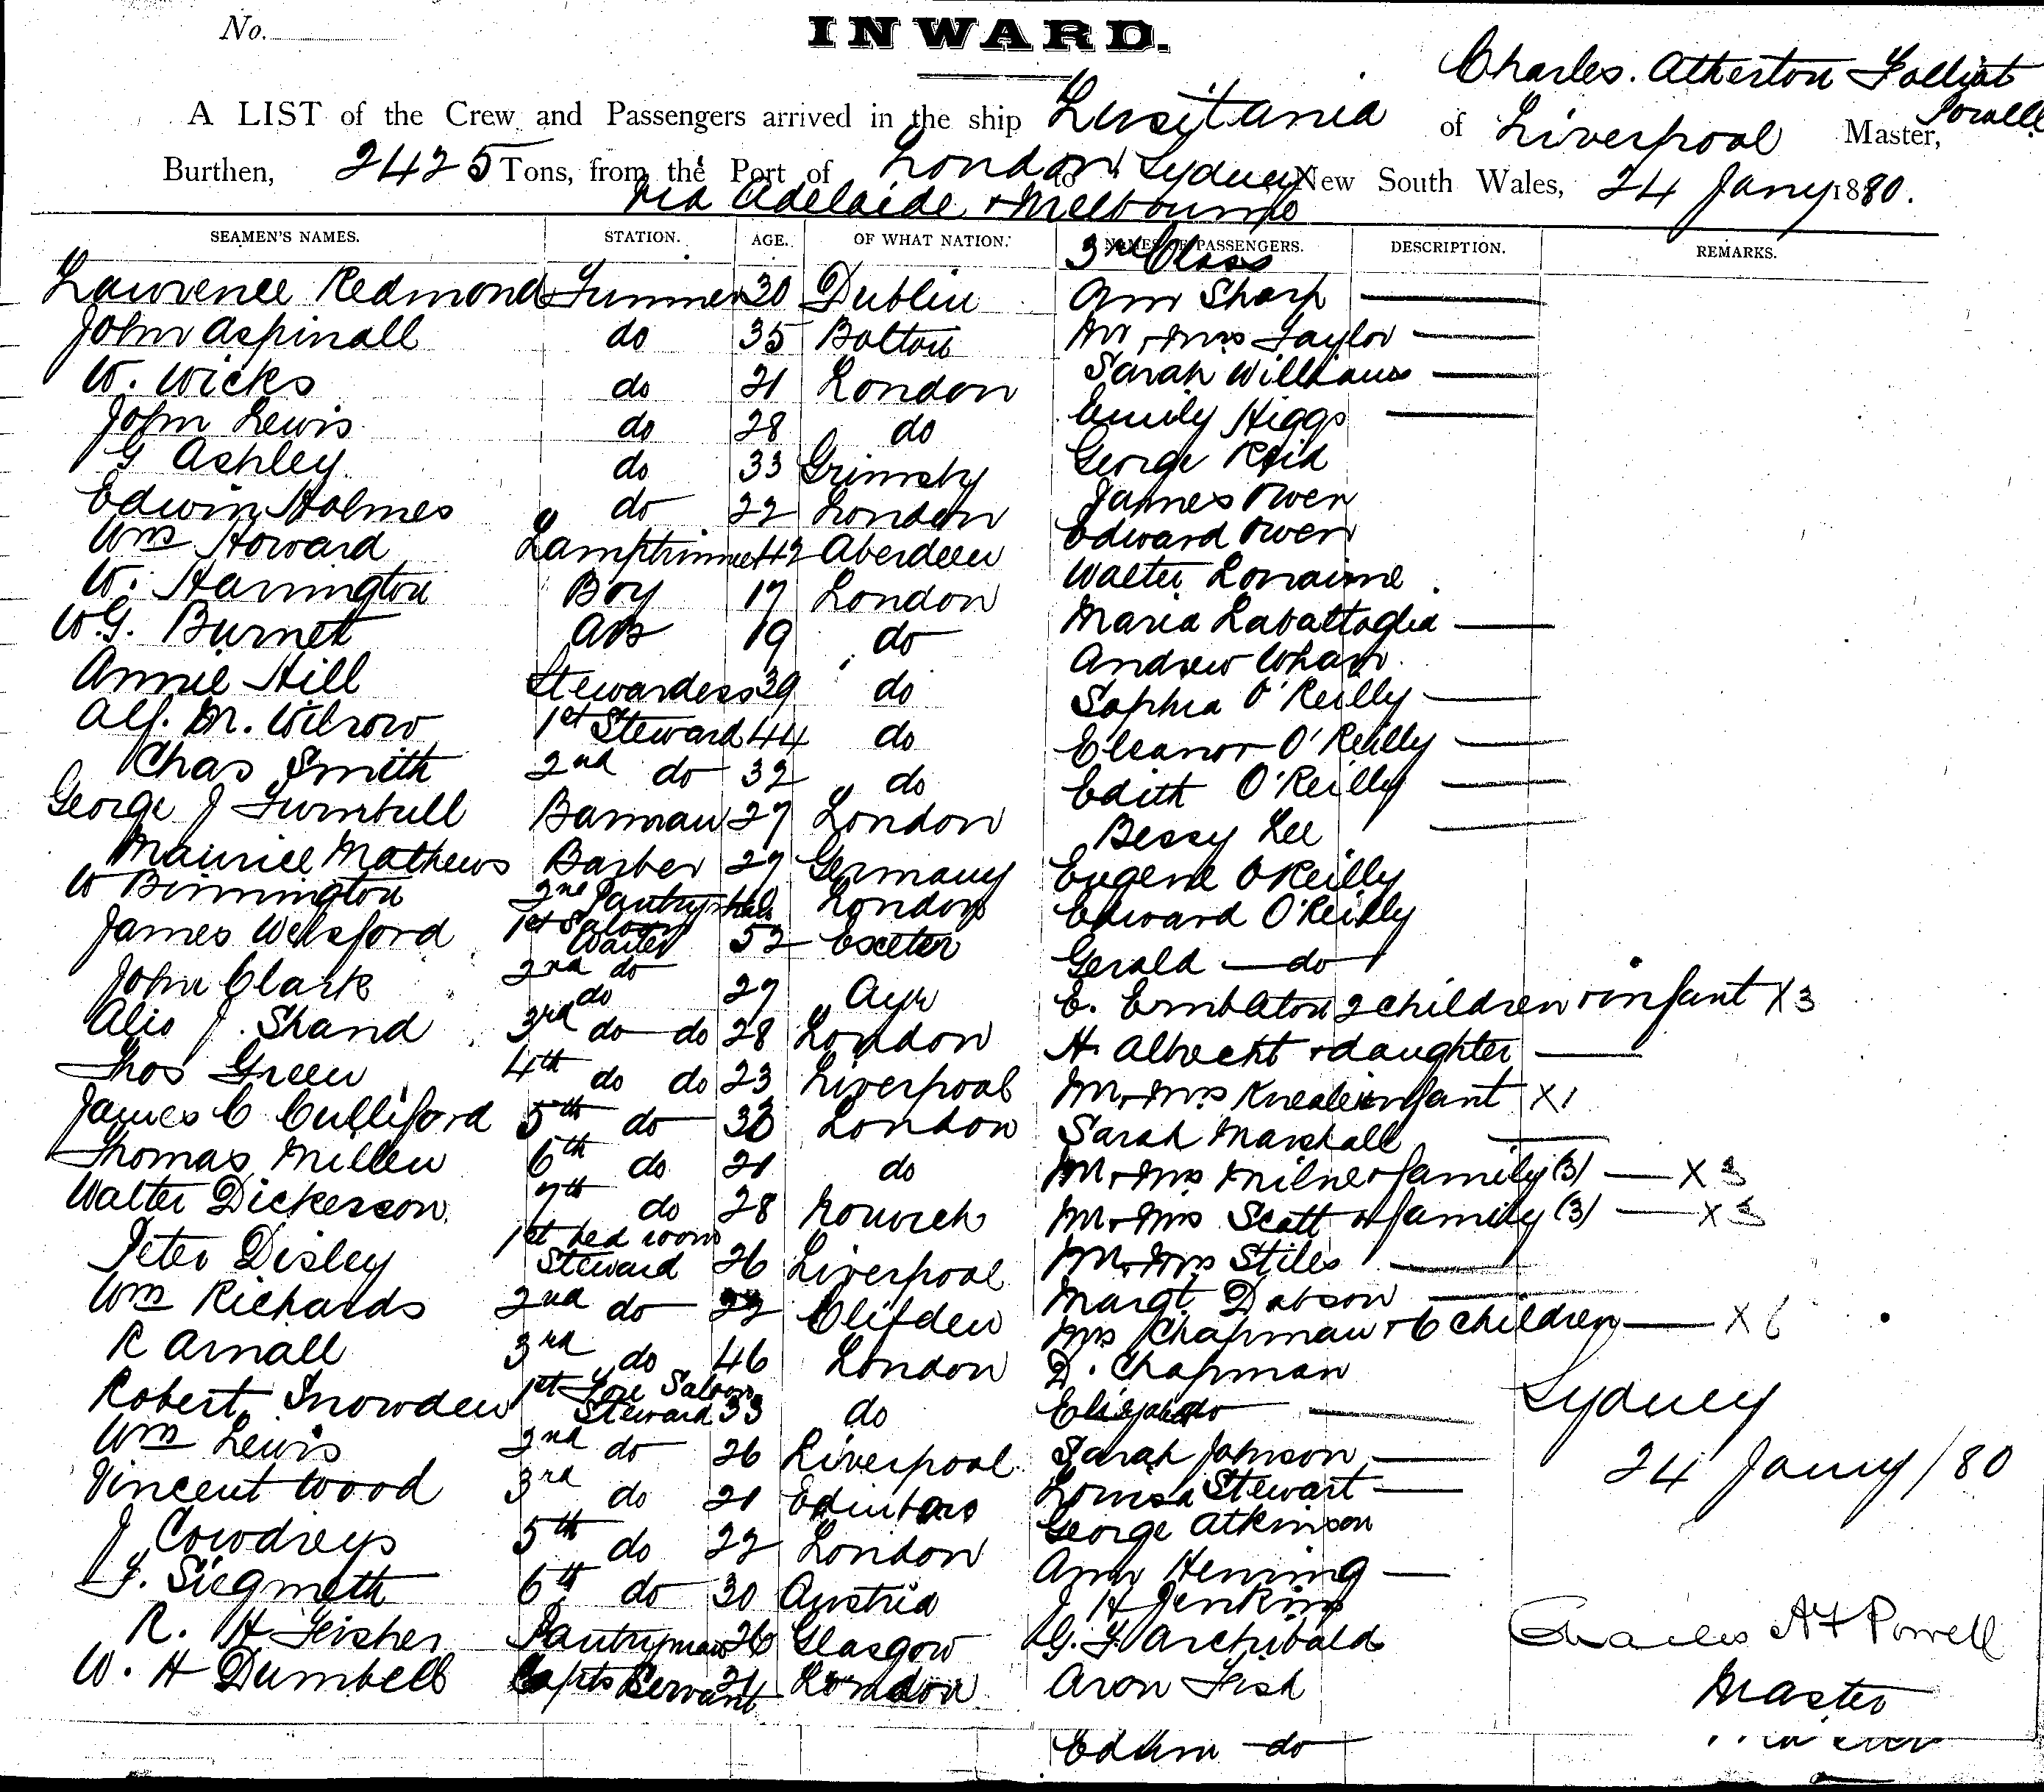 No.
INWARD.
Charles. Atherton Folliot Powell
A LIST of the Crew and Passengers arrived in the ship Lusitania of Liverpool Master,
Burthen, 2425 Tons, from the Port of London to Sydney New South Wales, 24 Jany 1880.
via Adelaide & Melbourne
SEAMEN'S NAMES. STATION. AGE. OF WHAT NATION. NAMES OF PASSENGERS. DESCRIPTION. REMARKS.
3rd Class
Lawrence Redmond 30 Dublin Ann Sharp
John Aspinall do 35 Bolton Mr & Mrs Taylor
W. Wicks do 21 London Sarah Williams
John Lewis do 28 do Emily Higgs
G Ashley do 33 Grimsby George Reid
Edwin Holmes do 22 London James Owen
Wm Howard Lamptrimmer 42 Aberdeen Edward Owen
W. Harrington Boy 17 London Walter Lorraine
W.G. Burnet AB 19 do Maria Labattaglia
Annie Hill Stewardess 39 do Andrew Wham
Alf. M. Wilrow 1st Steward 44 do Sophia O'Reilly
Chas Smith 2nd do 32 do Eleanor O'Reilly
George J Turnbull Barman 27 London Edith O'Reilly
Maurice Mathews Barber 27 Germany Bessy Lee
W Binnington 2nd Pantryman London Eugene O'Reilly
James Welsford 1st Saloon Waiter 52 Exeter Edward O'Reilly
John Clark 2nd do do 27 Ayr Gerald do
Alis J. Shand 3rd do do 28 London E. Embleton 2 children & infant X3
Thos Green 4th do do 23 Liverpool H. Albrecht & daughter
James C Culliford 5th do 33 London Mr & Mrs Kneale infant X1
Thomas Millen 6th do 21 do Sarah Marshall
Walter Dickerson 7th do 28 Norwich Mr & Mrs Milner & family (3) X 3
Peter Disley 1st bed room Steward 26 Liverpool Mr & Mrs Scott & family (3) X 3
Wm Richards 2nd do 22 Clifden Mr & Mrs Stiles
R Arnall 3rd do 46 London Margt. Dobson
Robert Snowden 1st Fore Saloon Steward 33 do Mrs Chapman & 6 children X 6
Wm Lewis 2nd do 26 Liverpool D. Chapman
Vincent Wood 3rd do 21 do
J Cowdreys 5th do 22 London Sarah Johnson
F. Siegmeth 6th do 30 Austria Louisa Stewart
R. H Fisher Pantryman 26 Glasgow George Atkinson
W. H Dumbell Capts Servant 21 London Ann Hening
J H Jenkins
G. F. Archibald
Aron Fish
do
Sydney
24 Jany /80
Charles A F Powell
Master